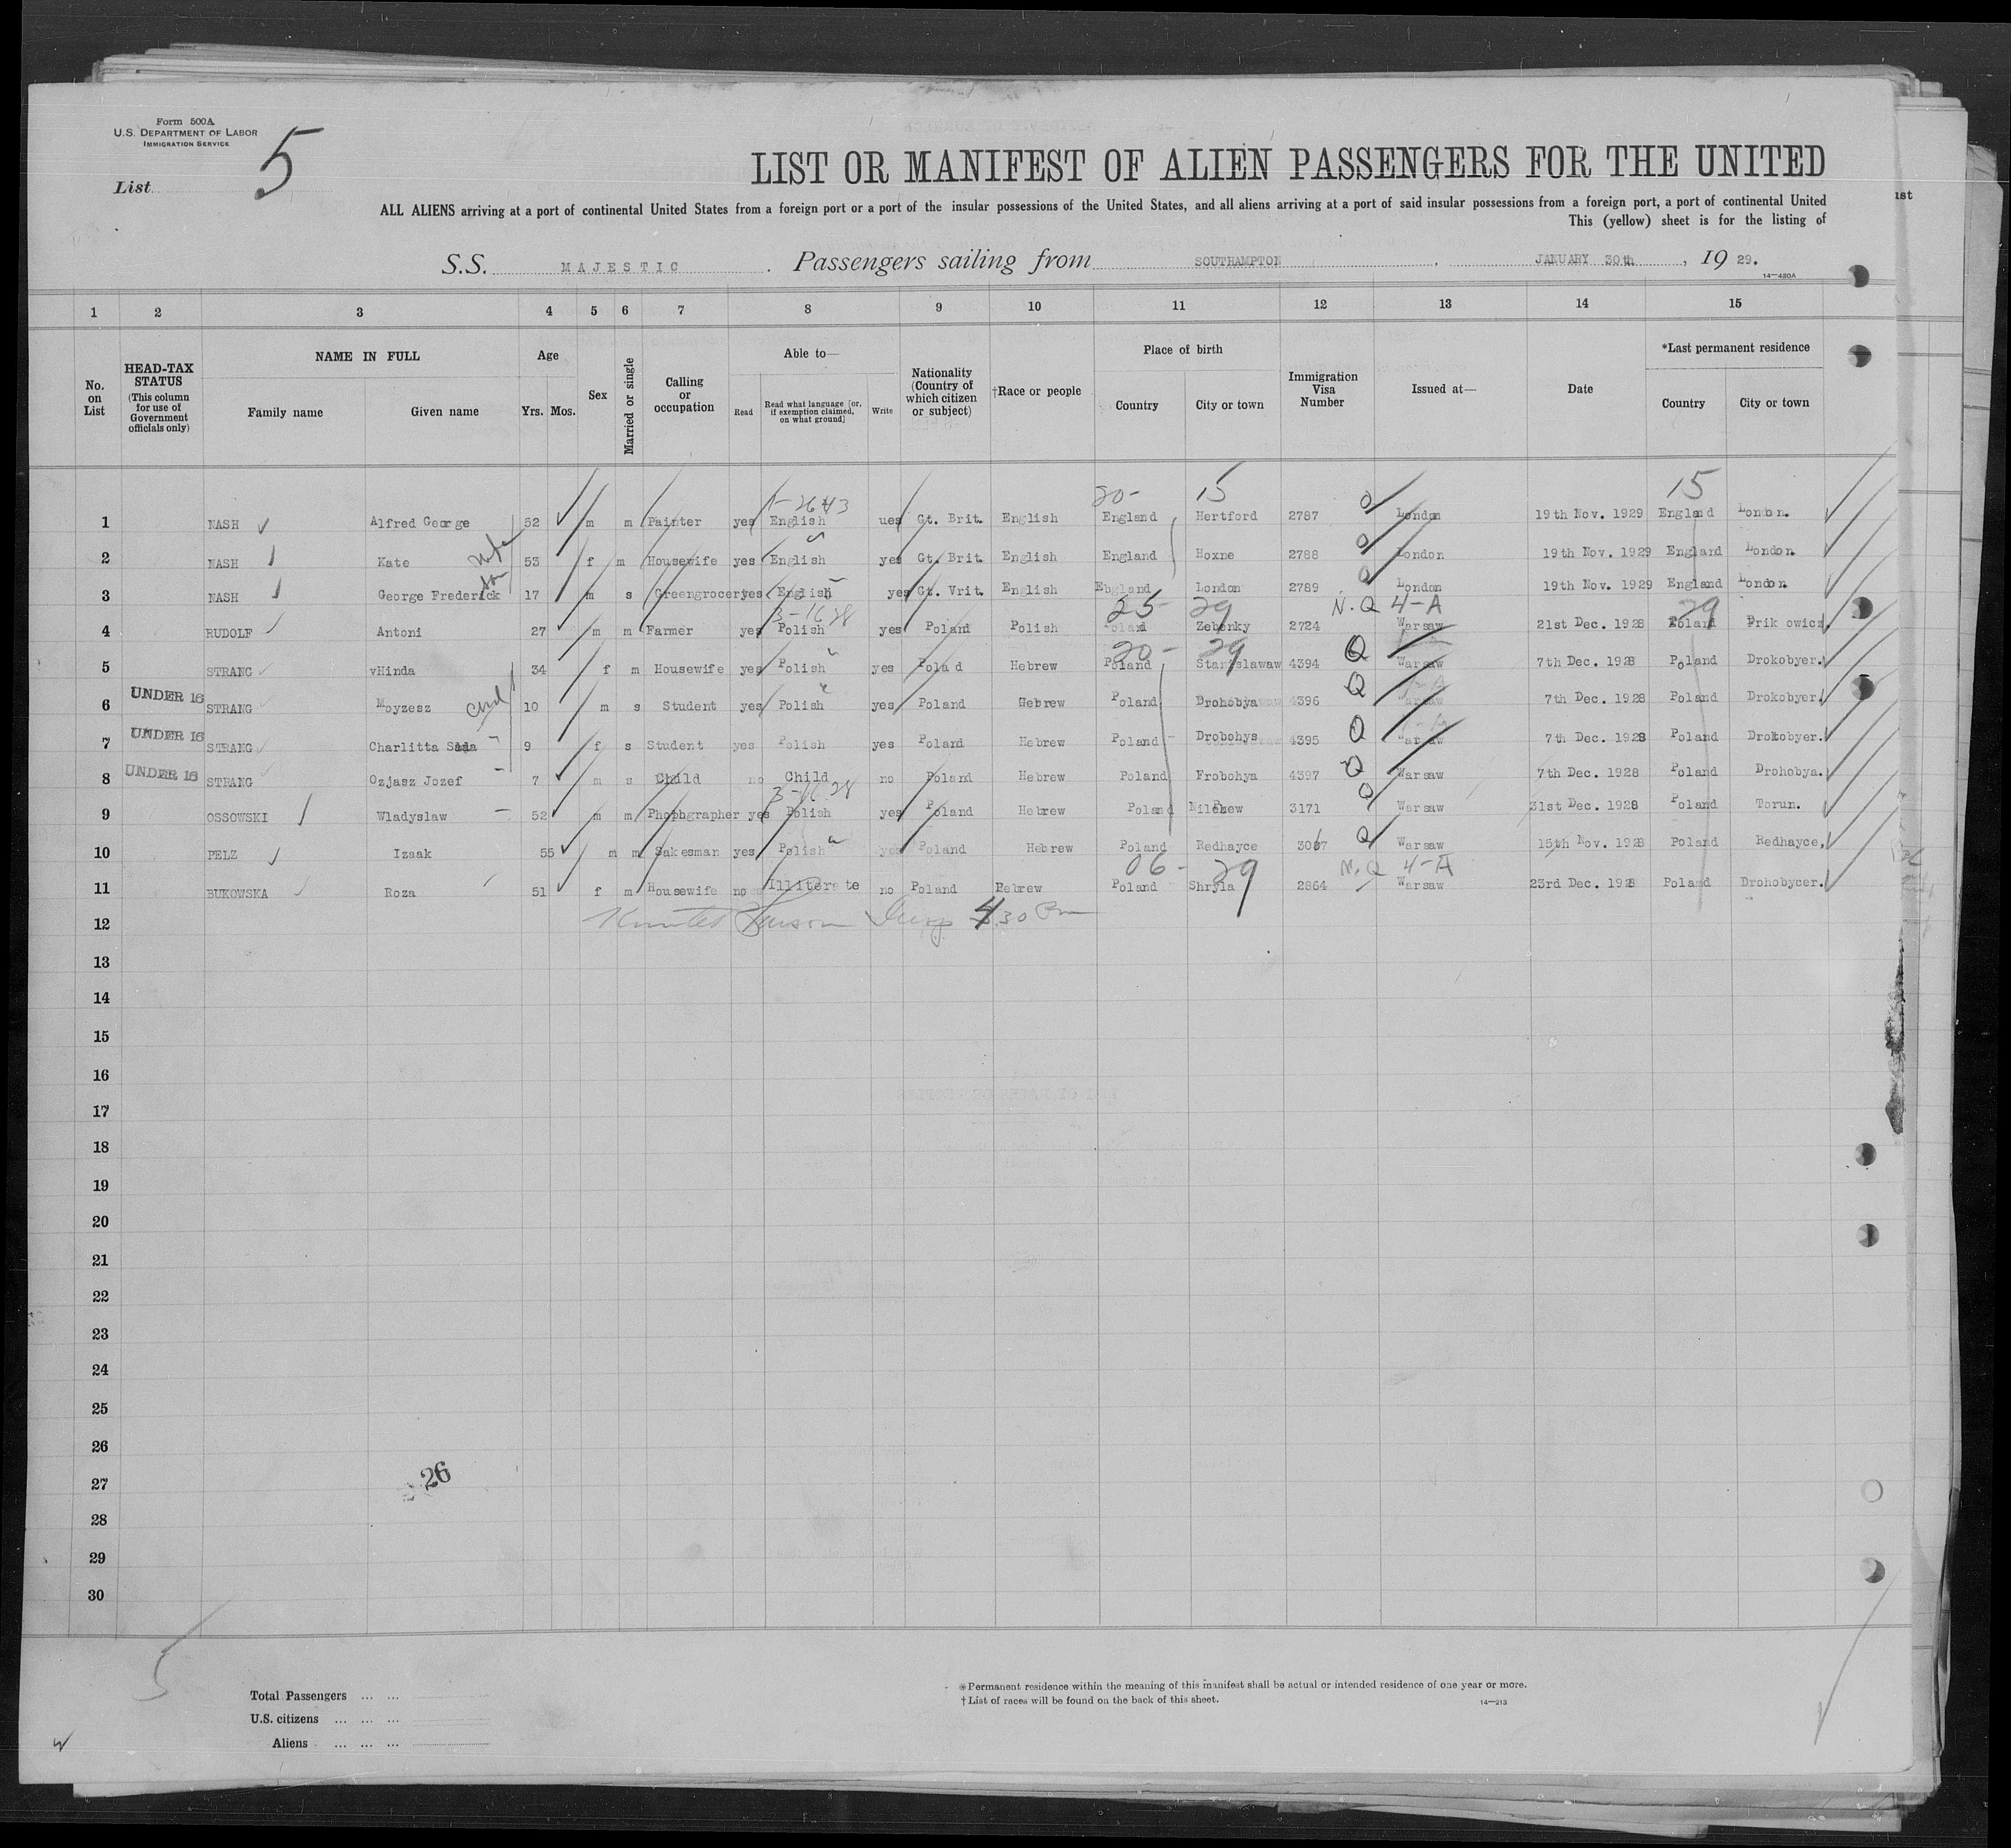 Form 500A
U.S. DEPARTMENT OF LABOR
IMMIGRATION SERVICE
List 5
LIST OR MANIFEST OF ALIEN PASSENGERS FOR THE UNITED
ALL ALIENS arriving at a port of continental United States from a foreign port or a port of the insular possessions of the United States, and all aliens arriving at a port of said insular possessions from a foreign port, a port of continental United
This (yellow) sheet is for the listing of
S.S. MAJESTIC. Passengers sailing from SOUTHAMPTON, JANUARY 30th, 1929.
14—480A
1 2 3 4 5 6 7 8 9 10 11 12 13 14 15
No. on List
HEAD-TAX STATUS (This column for use of Government officials only)
NAME IN FULL Family name Given name
Age Yrs. Mos.
Sex
Married or single
Calling or occupation
Able to— Read Read what language [or, if exemption claimed, on what ground] Write
Nationality (Country of which citizen or subject)
†Race or people
Place of birth Country City or town
Immigration Visa Number
Issued at—
Date
*Last permanent residence Country City or town
1-2643 20- 15 15
1 NASH Alfred George 52 m m Painter yes English ues Gt. Brit. English England Hertford 2787 London 19th Nov. 1929 England London.
2 NASH Kate wife 53 f m Housewife yes English yes Gt. Brit. English England Hoxne 2788 London 19th Nov. 1929 England London.
3 NASH George Frederick son 17 m s Greengrocer yes English yes Gt. Vrit. English Ebgland London 2789 London 19th Nov. 1929 England London.
25- 29 N.Q 4-A 29
4 RUDOLF Antoni 27 m m Farmer yes Polish yes Poland Polish Poland Zebenky 2724 Warsaw 21st Dec. 1928 Poland
20- 29
5 STRANG vHinda 34 f m Housewife yes Polish yes Pola d Hebrew Poland Stanislawaw 4394 Q Warsaw 7th Dec. 1928 Poland Drokobyer.
6 UNDER 16 STRANG Moyzesz 10 m s Student yes Polish yes Poland Gebrew Poland Drohobya 4396 Q 7th Dec. 1928 Poland Drokobyer.
7 UNDER 16 STRANG Charlitta 9 f s Student yes Polish yes Poland Hebrew Poland Drobohys 4395 Q 7th Dec. 1928 Poland Drokobyer.
8 UNDER 16 STRANG Ozjasz Jozef 7 m s Child no Child no Poland Hebrew Poland Frobohya 4397 Q Warsaw 7th Dec. 1928 Poland Drohobya.
9 OSSOWSKI Wladyslaw 52 m m Phophgrapher yes Polish yes Poland Hebrew Poland 3171 Q Warsaw 31st Dec. 1928 Poland Torun.
10 PELZ Izaak 55 m m Sakesman yes Polish yes Poland Hebrew Poland Redhayce Q Warsaw 15th Nov. 1928 Poland Redhayce,
06- 29 N.Q 4-A
11 BUKOWSKA Roza 51 f m Housewife no Illiterate no Poland Poland Shryla 2864 Warsaw 23rd Dec. 1928 Poland Drohobycer.
12
13
14
15
16
17
18
19
20
21
22
23
24
25
26
27
26
28
29
30
5
Total Passengers ... ...
U.S. citizens ... ... ...
Aliens ... ... ...
*Permanent residence within the meaning of this manifest shall be actual or intended residence of one year or more.
†List of races will be found on the back of this sheet.
14—213